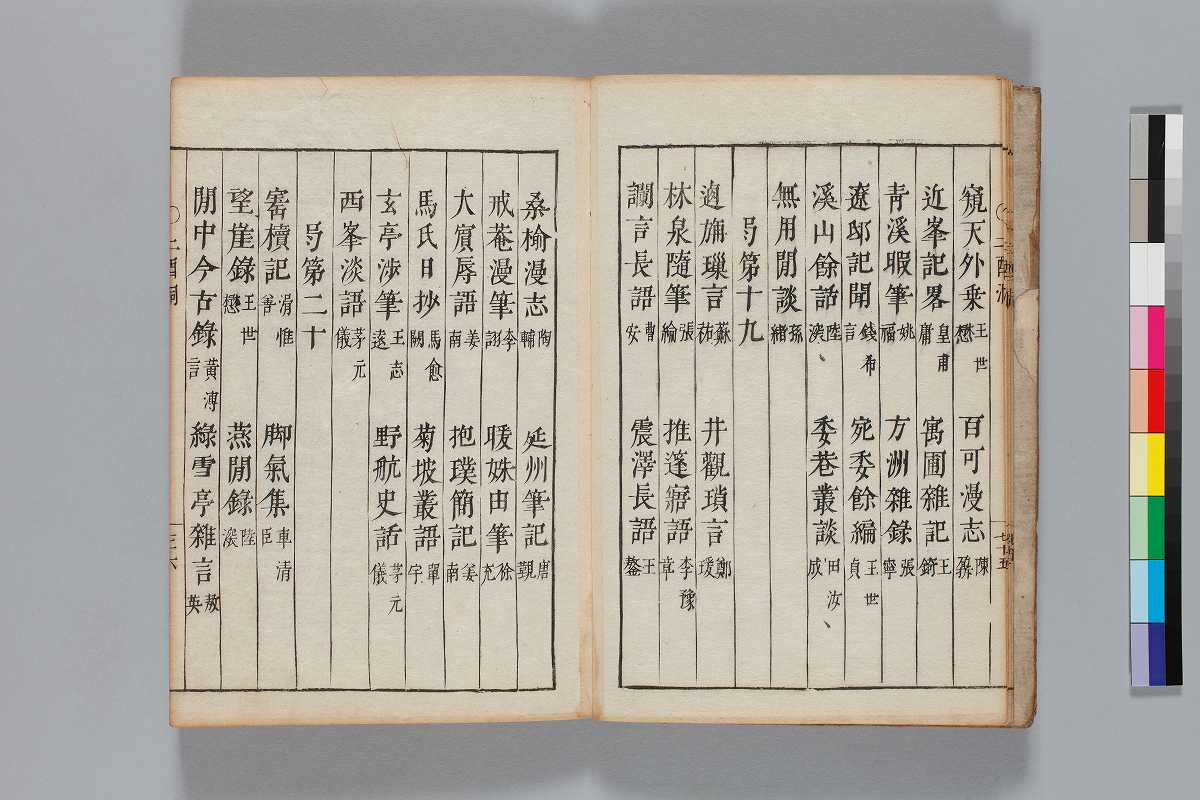 窺天外乗 王世懋 百可漫志 陳鼐
近峯記畧 皇甫庸 寓圃雜記 王錡
青溪暇筆 姚福 方洲雜錄 張寧
遼邸記聞 錢希言 宛委餘編 王世貞
溪山餘話 陸深 委巷叢談 田汝成
無用閒談 孫緒
弓第十九
逌旃璅言 蘇祐 井觀瑣言 鄭瑗
林泉隨筆 張綸 推篷寤語 李豫
讕言長語 曹安 震澤長語 王鏊
桑榆漫志 陶輔 延州筆記 唐覲
戒菴漫筆 李詡 暖姝由筆 徐充
大賓辱語 姜南 抱璞簡記 姜南
馬氏日抄 馬愈 闕 菊坡叢語 單宇
玄亭涉筆 王志遠 野航史話 茅元儀
西峯淡語 茅元儀
弓第二十
櫝記 滑惟善 脚氣集 車清臣
望崖錄 王世懋 燕閒錄 陸深
閒中今古錄 黃溥言 綠雪亭雜言 敖英